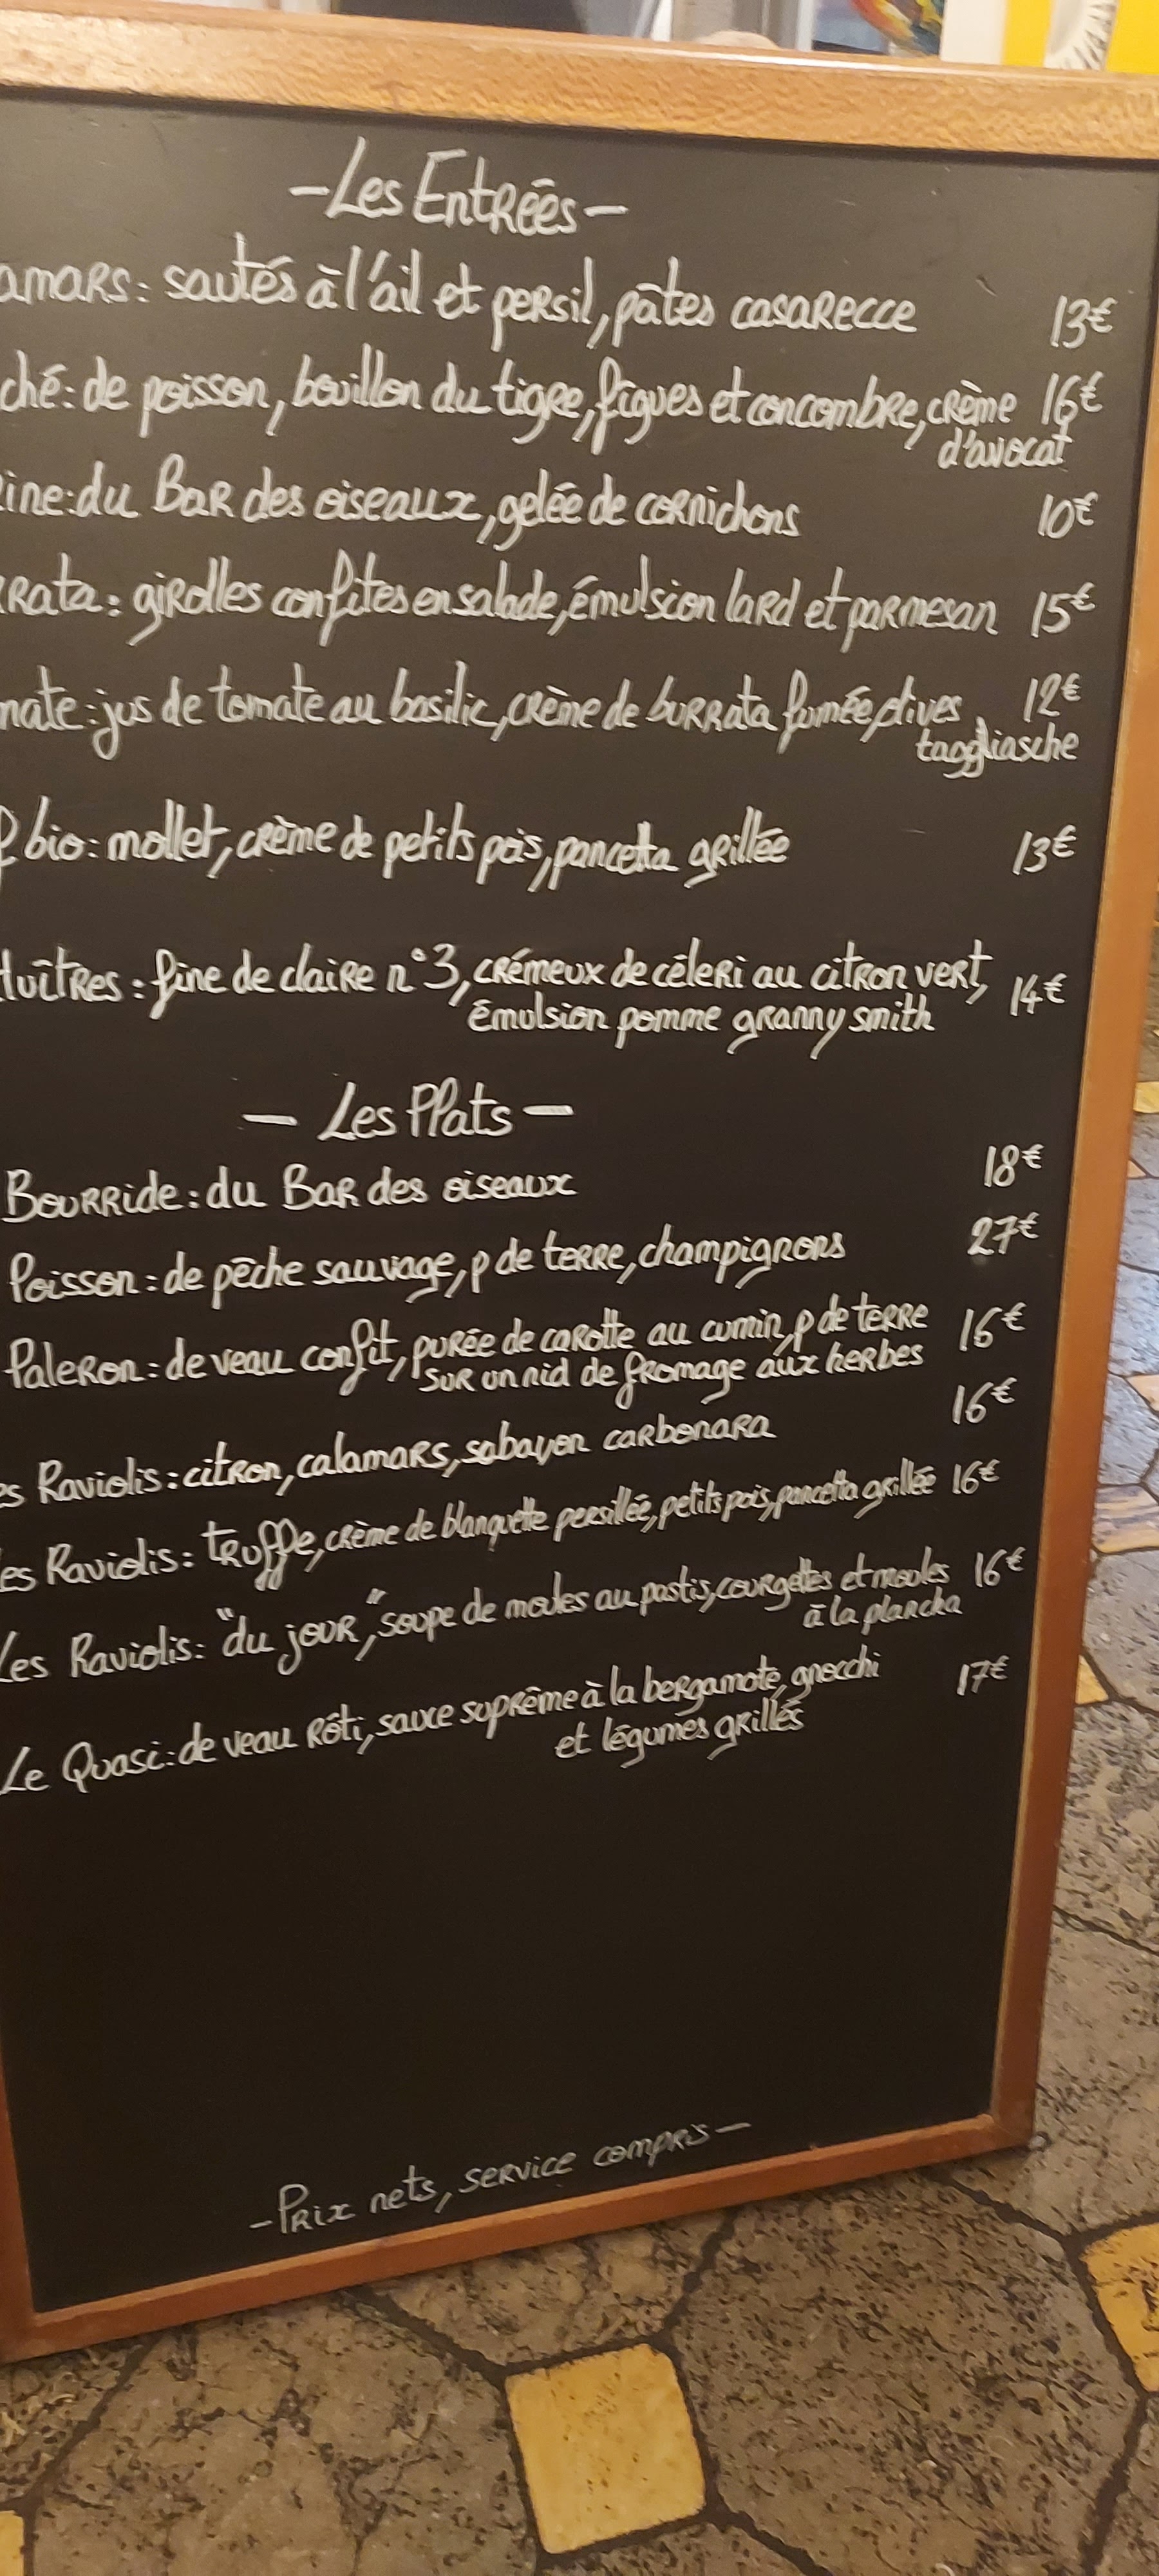 -Les Entrées-
amars: sautés à l'ail et persil, pâtes casarecce 13€
ché: de poisson, bouillon du tigre, figues et concombre, crème 16€
d'avocat
ine: du Bar des oiseaux, gelée de cornichons 10€
rrata: girolles confites en salade, émulsion lard et parmesan 15€
mate: jus de tomate au basilic, crème de burrata fumée, olives 12€
taggliasche
bio: mollet, crème de petits pois, pancetta grillée 13€
Huîtres: fine de claire n°3, crémeux de céleri au citron vert, 14€
émulsion pomme granny smith
- Les Plats -
Bourride: du Bar des oiseaux 18€
Poisson: de pêche sauvage, p de terre, champignons 27€
Paleron: de veau confit, purée de carotte au cumin, p de terre 16€
sur un nid de fromage aux herbes
es Raviolis: citron, calamars, sabayon carbonara 16€
es Raviolis: truffe, crème de blanquette persillée, petits pois, pancetta grillée 16€
Les Raviolis: "du jour", soupe de moules au pastis, courgettes et moules 16€
à la plancha
Le Quasi: de veau rôti, sauce suprême à la bergamote, gnocchi 17€
et légumes grillés
-Prix nets, service compris-